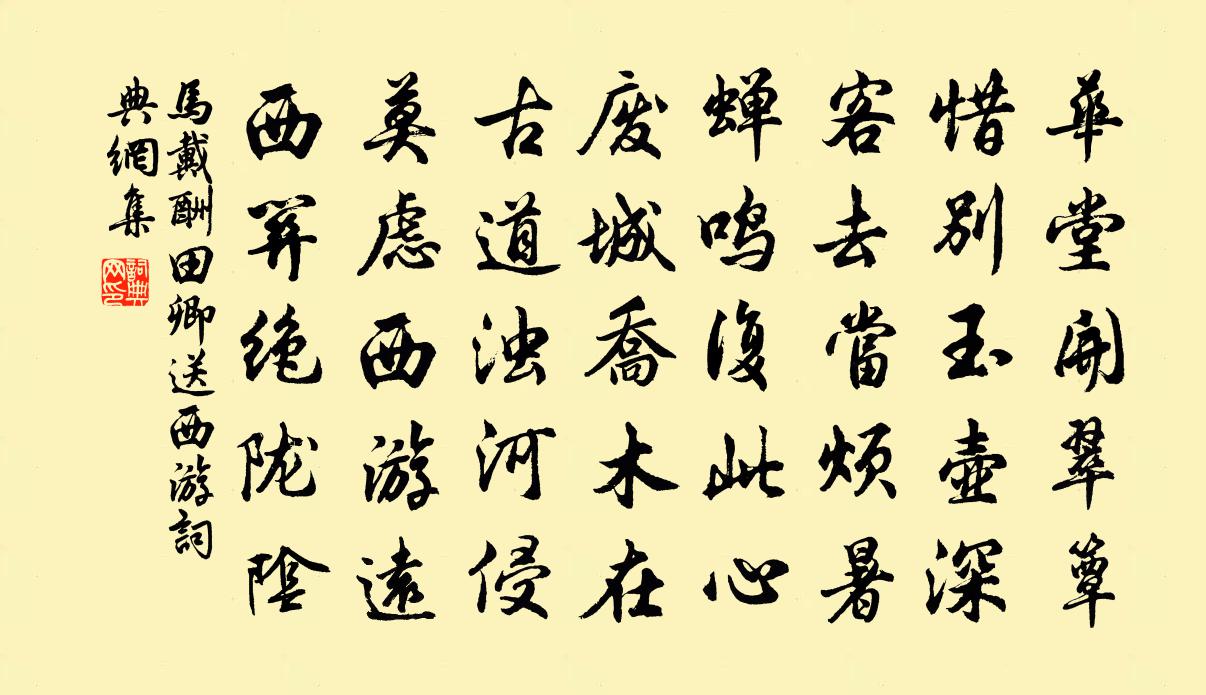 華堂開翠簟
惜別玉壺深
客去當煩暑
蝉鸣復此心
废城喬木在
古道浊河侵
莫虑西游遠
西關绝陇陰
馬戴酬田卿送西游詞
典網集
詞典网印